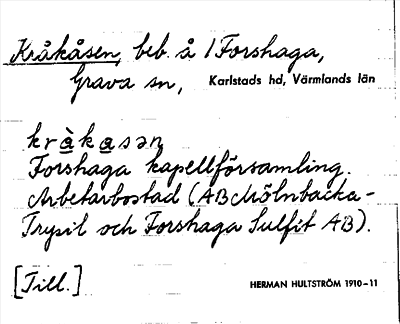 Kråkåsen, beb. å 1 Forshaga,
Grava sn, Karlstads hd, Värmlands län
kràkasən
Forshaga kapellförsamling.
Arbetarbostad (AB Mölnbacka-
Trysil och Forshaga Sulfit AB).
[Till.]
HERMAN HULTSTRÖM 1910-11